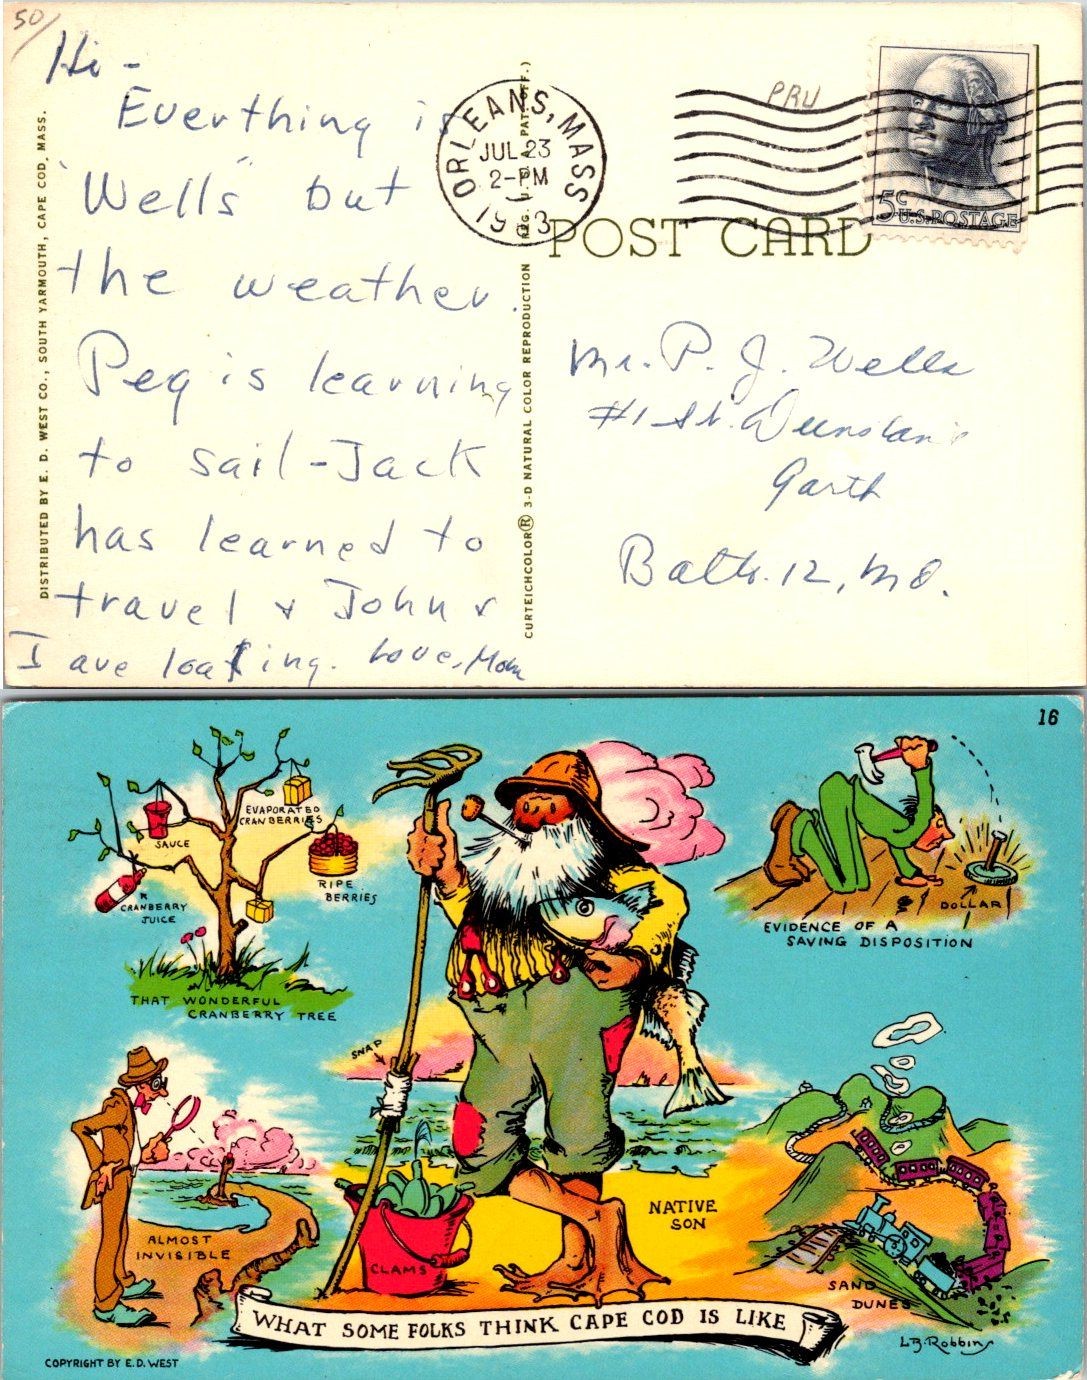 50/
Hi -
Everthing is
"Wells" but
the weather.
Peg is learning
to sail - Jack
has learned to
travel & John &
I are loafing. Love, Mom
DISTRIBUTED BY E. D. WEST CO., SOUTH YARMOUTH, CAPE COD, MASS.
CURTEICHCOLOR® 3-D NATURAL COLOR REPRODUCTION
ORLEANS, MASS
JUL 23
2-PM
PRU
5c
U.S. POSTAGE
POST CARD
Mr. P. J. Wells
#1 St. Dunstan's
Garth
Balto. 12, Md.
16
EVAPORATED
CRANBERRIES
SAUCE
RIPE
BERRIES
CRANBERRY
JUICE
THAT WONDERFUL
CRANBERRY TREE
DOLLAR
EVIDENCE OF A
SAVING DISPOSITION
SNAP
ALMOST
INVISIBLE
CLAMS
NATIVE
SON
SAND
DUNES
WHAT SOME FOLKS THINK CAPE COD IS LIKE
L.B. Robbins
COPYRIGHT BY E.D. WEST